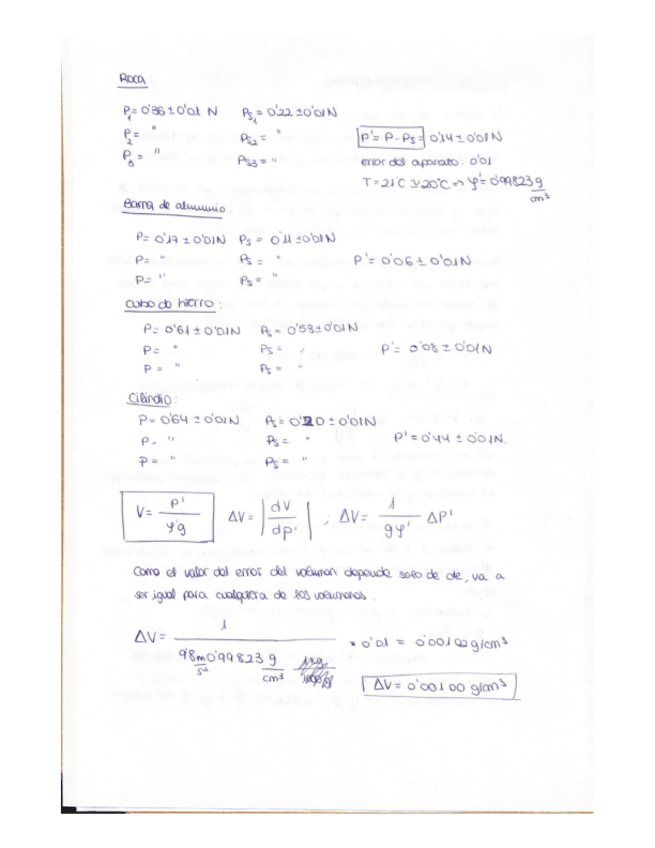 Roca:
P₁= 0'36 ± 0'01 N  Ps₁= 0'22 ± 0'01N
P₂= "  Ps₂= "  P'= P-Ps= 0'14 ± 0'01 N
P₃= "  Ps₃= "  error del aparato: 0'01
T= 21°C ≃ 20°C ⇒ φ'= 0'99823 g/cm³
Barra de aluminio:
P= 0'17 ± 0'01N  Ps= 0'11 ± 0'01N
P= "  Ps= "  P'= 0'06 ± 0'01N
P= "  Ps= "
Cubo de hierro:
P= 0'61 ± 0'01N  Ps= 0'53 ± 0'01N
P= "  Ps= "  P'= 0'08 ± 0'01N
P= "  Ps= "
Cilindro:
P= 0'64 ± 0'01N  Ps= 0'20 ± 0'01N
P= "  Ps= "  P'= 0'44 ± 0'01N.
P= "  Ps= "
V= P'/φ'g  ΔV= |dV/dp'| ; ΔV= 1/gφ' ΔP'
Como el valor del error del volumen depende solo de de, va a
ser igual para cualquiera de los volumenes.
ΔV= 1/(9'8 m/s² 0'99823 g/cm³) • 0'01 = 0'00100 g/cm³
ΔV= 0'00100 g/cm³